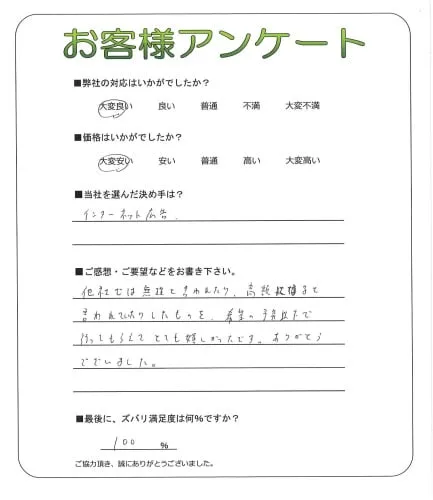 お客様アンケート
■弊社の対応はいかがでしたか?
大変良い 良い 普通 不満 大変不満
■価格はいかがでしたか?
大変安い 安い 普通 高い 大変高い
■当社を選んだ決め手は?
インターネット広告.
■ご感想・ご要望などをお書き下さい。
他社では無理と言われたり、高額
言われていたりしたものを、希望の
行ってもらえてとても嬉しかったです。ありがとう
ございました。
■最後に、ズバリ満足度は何%ですか?
100 %
ご協力頂き、誠にありがとうございました。